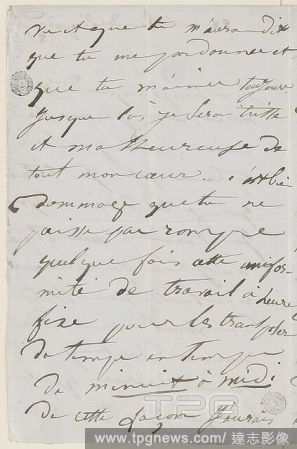 et que tu m'auras dit
que tu me pardonnes et
que tu m'aimes toujours
jusque là je serai triste
et malheureuse de
tout mon coeur. c'est bien
dommage que tu ne
puisse pas rompre
quelque fois cette unifor-
mité de travail à heure
fixe pour les transposer
de temps en temps
de minuit à midi
de cette façon j'aurais
TPG
www.tpgnews.com/ 達志影像